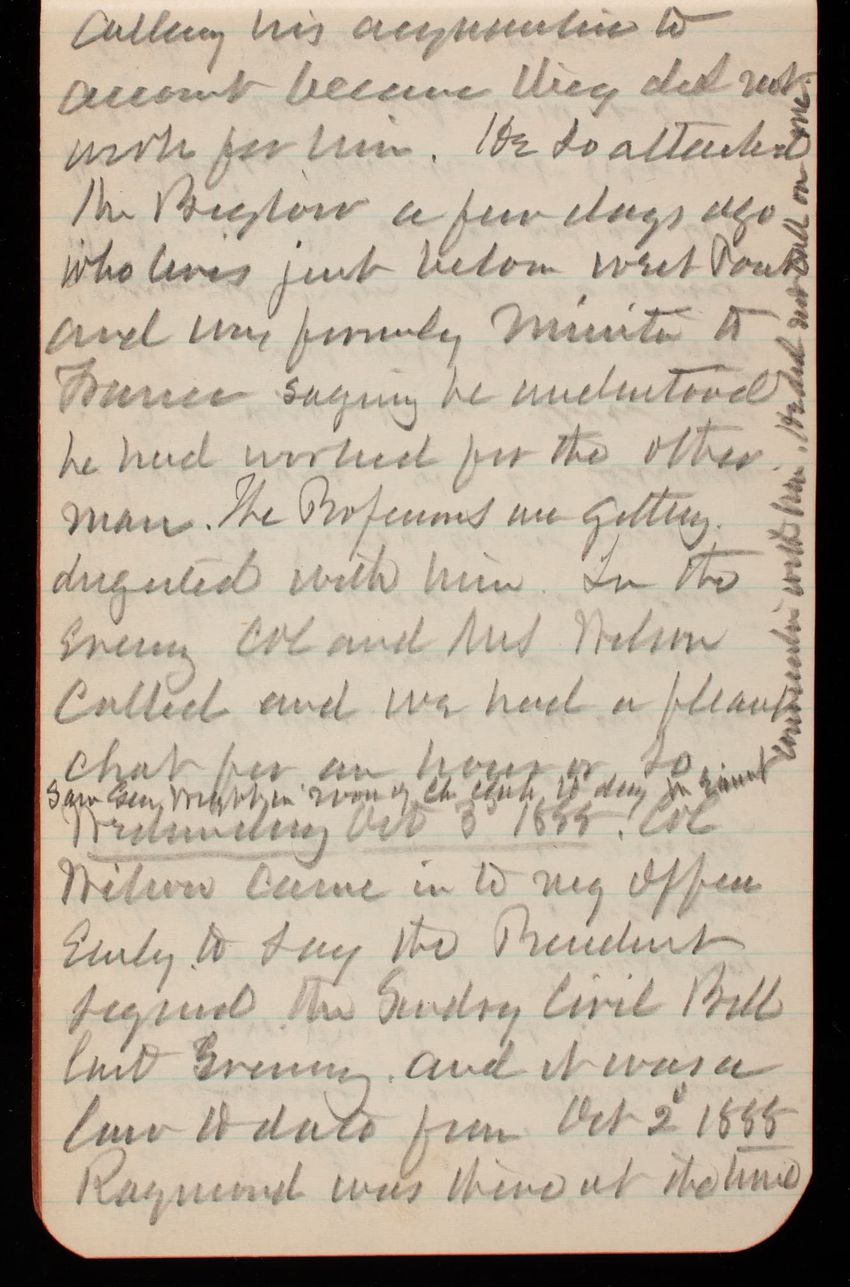 Calling his acquaintance to
account because they did not
work for him. He so attacked
Mr Bigelow a few days ago
who lives just below West Point
and was formerly Minister to
France saying he understood
he had worked for the other
man. The Professors are getting
disgusted with him. In the
Evening Col and Mrs Wilson
Called and we had a pleasant
chat for an hour or so
Saw Gen Wright in room of Ch Eng to day in joint
committee with him. He did not call on me
Wednesday Oct 3d 1888. Col
Wilson came in to my Office
Early to say the President
signed the Sundry Civil Bill
last Evening and it was a
law to date from Oct 2d 1888
Raymond was there at the time